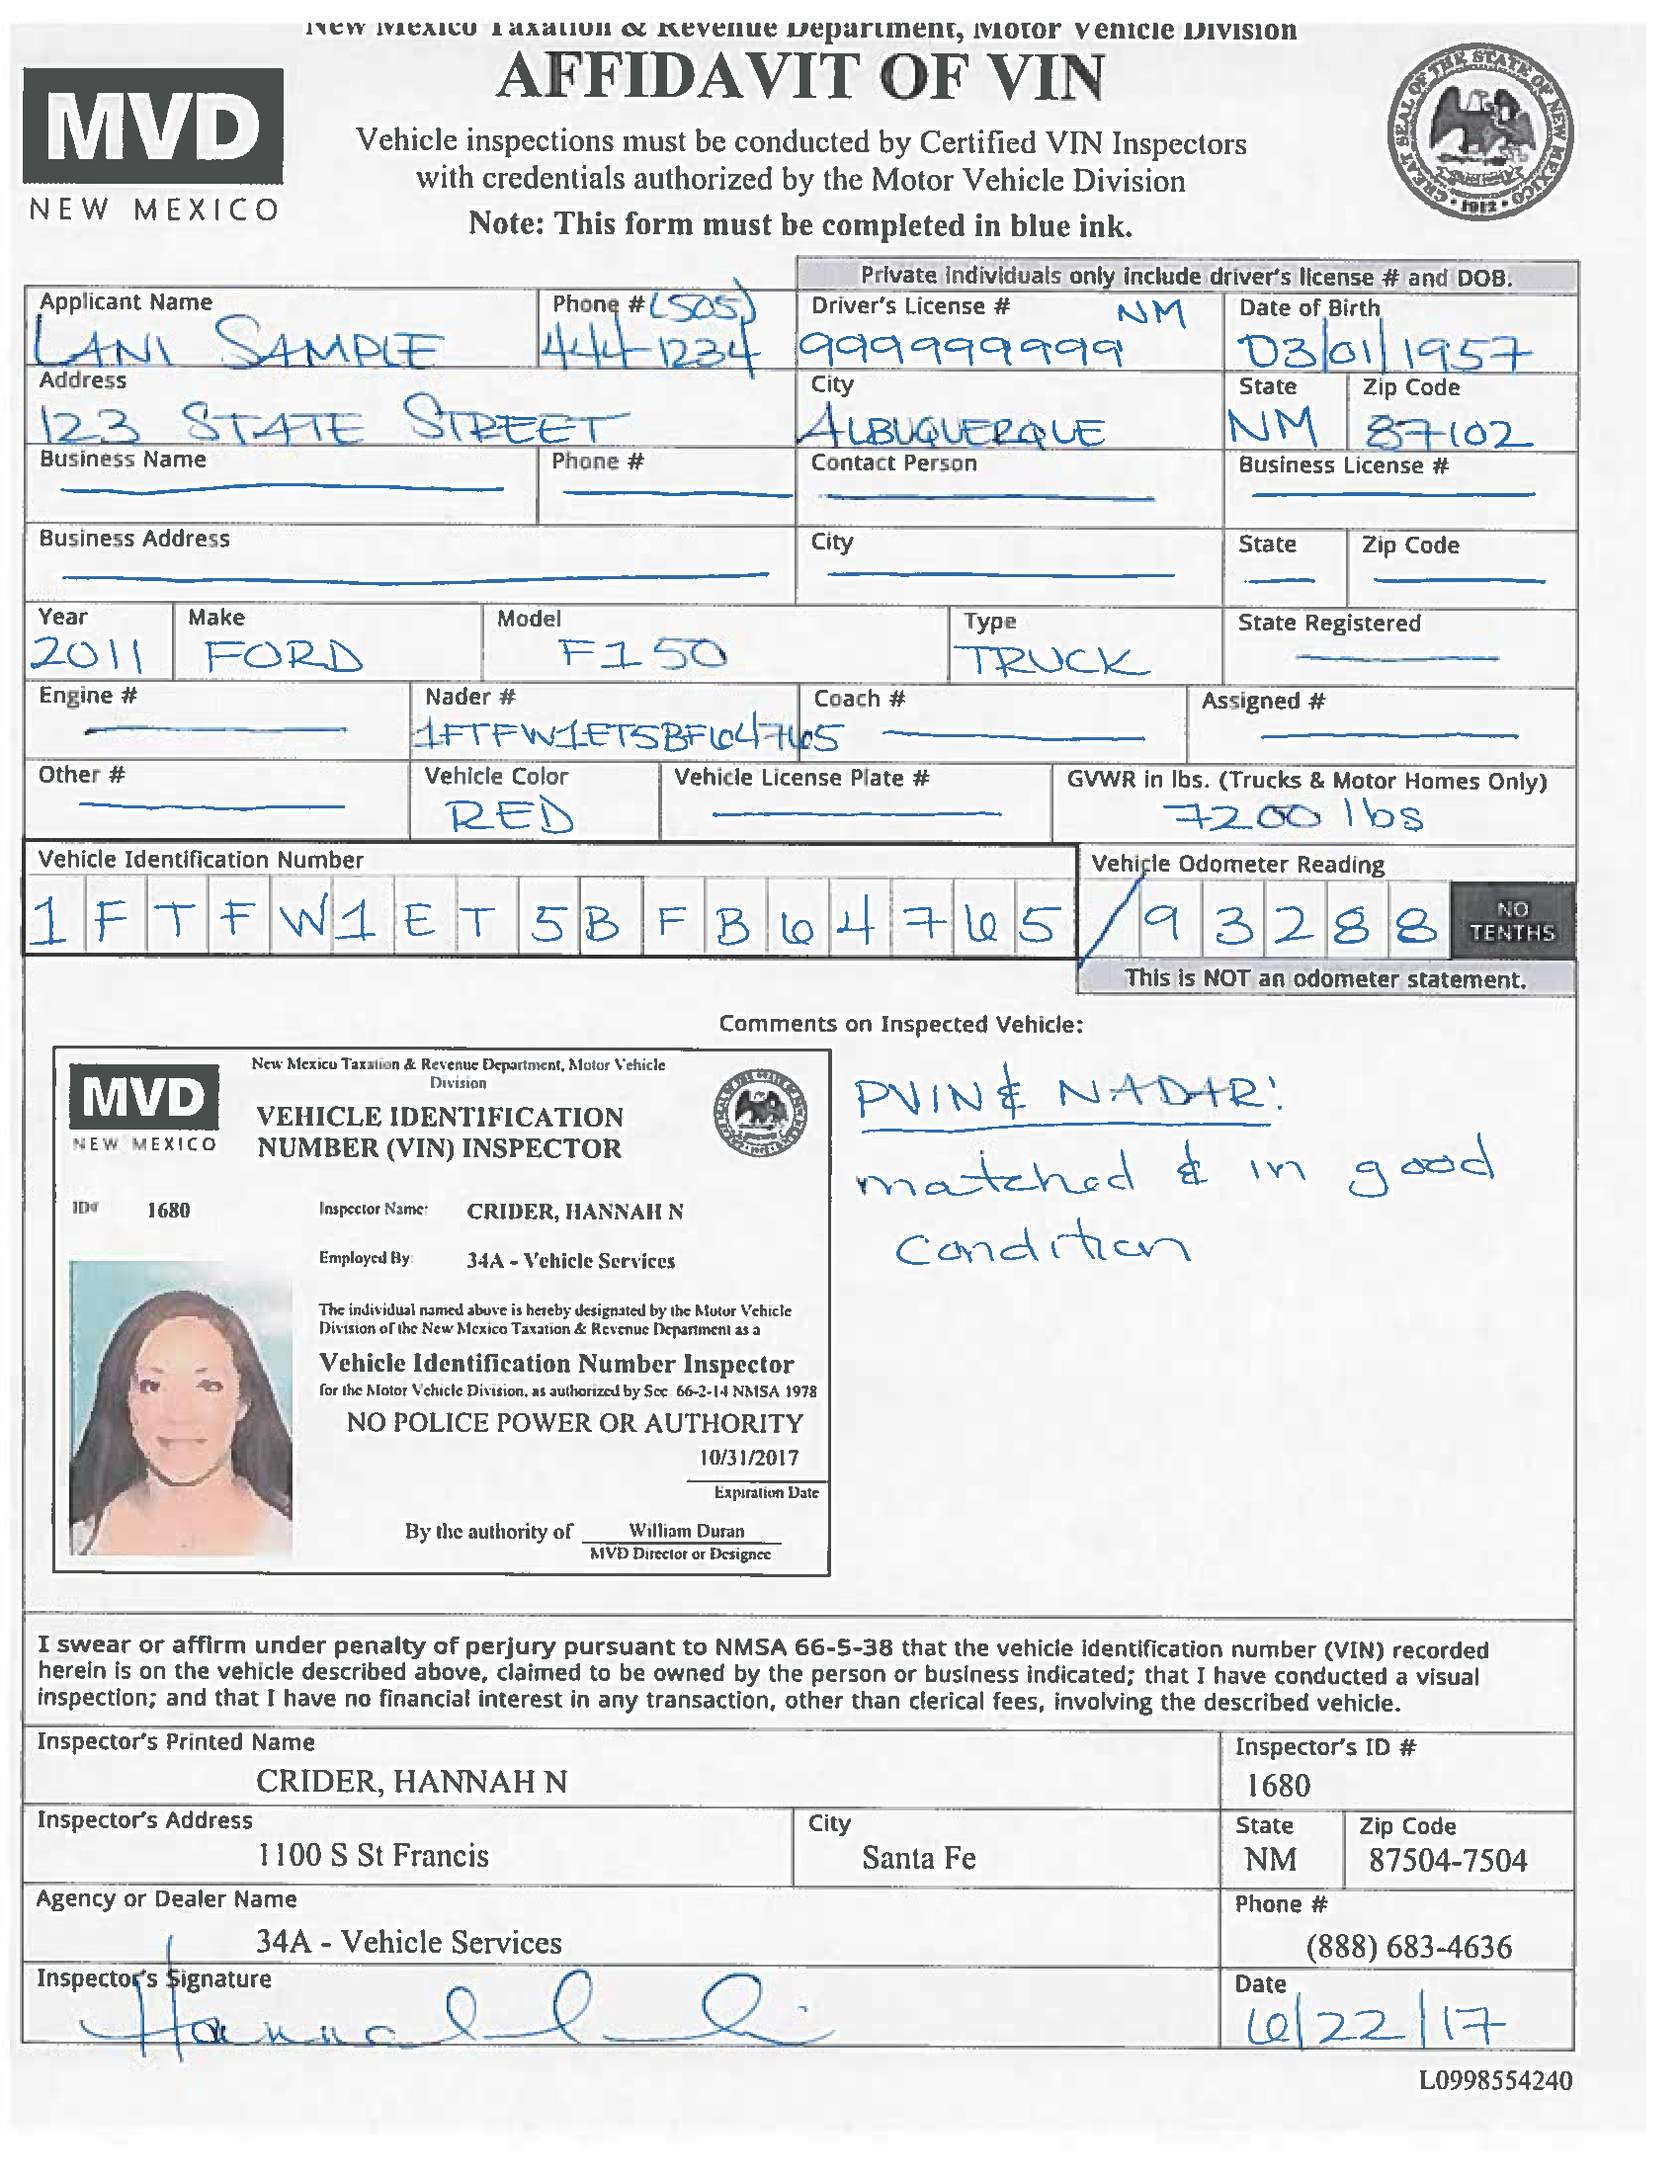 New Mexico Taxation & Revenue Department, Motor Vehicle Division
AFFIDAVIT OF VIN
MVD
NEW MEXICO
Vehicle inspections must be conducted by Certified VIN Inspectors
with credentials authorized by the Motor Vehicle Division
Note: This form must be completed in blue ink.
GREAT SEAL OF THE STATE OF NEW MEXICO
1912
Private individuals only include driver's license # and DOB.
Applicant Name Phone # (505) Driver's License # NM Date of Birth
LANI SAMPLE 444-1234 999999999 03/01/1957
Address City State Zip Code
123 STATE STREET ALBUQUERQUE NM 87102
Business Name Phone # Contact Person Business License #
Business Address City State Zip Code
Year Make Model Type State Registered
2011 FORD F150 TRUCK
Engine # Nader # Coach # Assigned #
1FTFW1ET5BF64765
Other # Vehicle Color Vehicle License Plate # GVWR in lbs. (Trucks & Motor Homes Only)
RED 7200 lbs
Vehicle Identification Number Vehicle Odometer Reading
1 F T F W 1 E T 5 B F B 6 4 7 6 5 / 9 3 2 8 8 NO TENTHS
This is NOT an odometer statement.
Comments on Inspected Vehicle:
PVIN & NADAR!
matched & in good
condition
New Mexico Taxation & Revenue Department, Motor Vehicle
Division
MVD
NEW MEXICO
VEHICLE IDENTIFICATION
NUMBER (VIN) INSPECTOR
ID# 1680 Inspector Name: CRIDER, HANNAH N
Employed By: 34A - Vehicle Services
The individual named above is hereby designated by the Motor Vehicle
Division of the New Mexico Taxation & Revenue Department as a
Vehicle Identification Number Inspector
for the Motor Vehicle Division, as authorized by Sec. 66-2-14 NMSA 1978
NO POLICE POWER OR AUTHORITY
10/31/2017
Expiration Date
By the authority of William Duran
MVD Director or Designee
I swear or affirm under penalty of perjury pursuant to NMSA 66-5-38 that the vehicle identification number (VIN) recorded
herein is on the vehicle described above, claimed to be owned by the person or business indicated; that I have conducted a visual
inspection; and that I have no financial interest in any transaction, other than clerical fees, involving the described vehicle.
Inspector's Printed Name Inspector's ID #
CRIDER, HANNAH N 1680
Inspector's Address City State Zip Code
1100 S St Francis Santa Fe NM 87504-7504
Agency or Dealer Name Phone #
34A - Vehicle Services (888) 683-4636
Inspector's Signature Date
Hannah 6/22/17
L0998554240